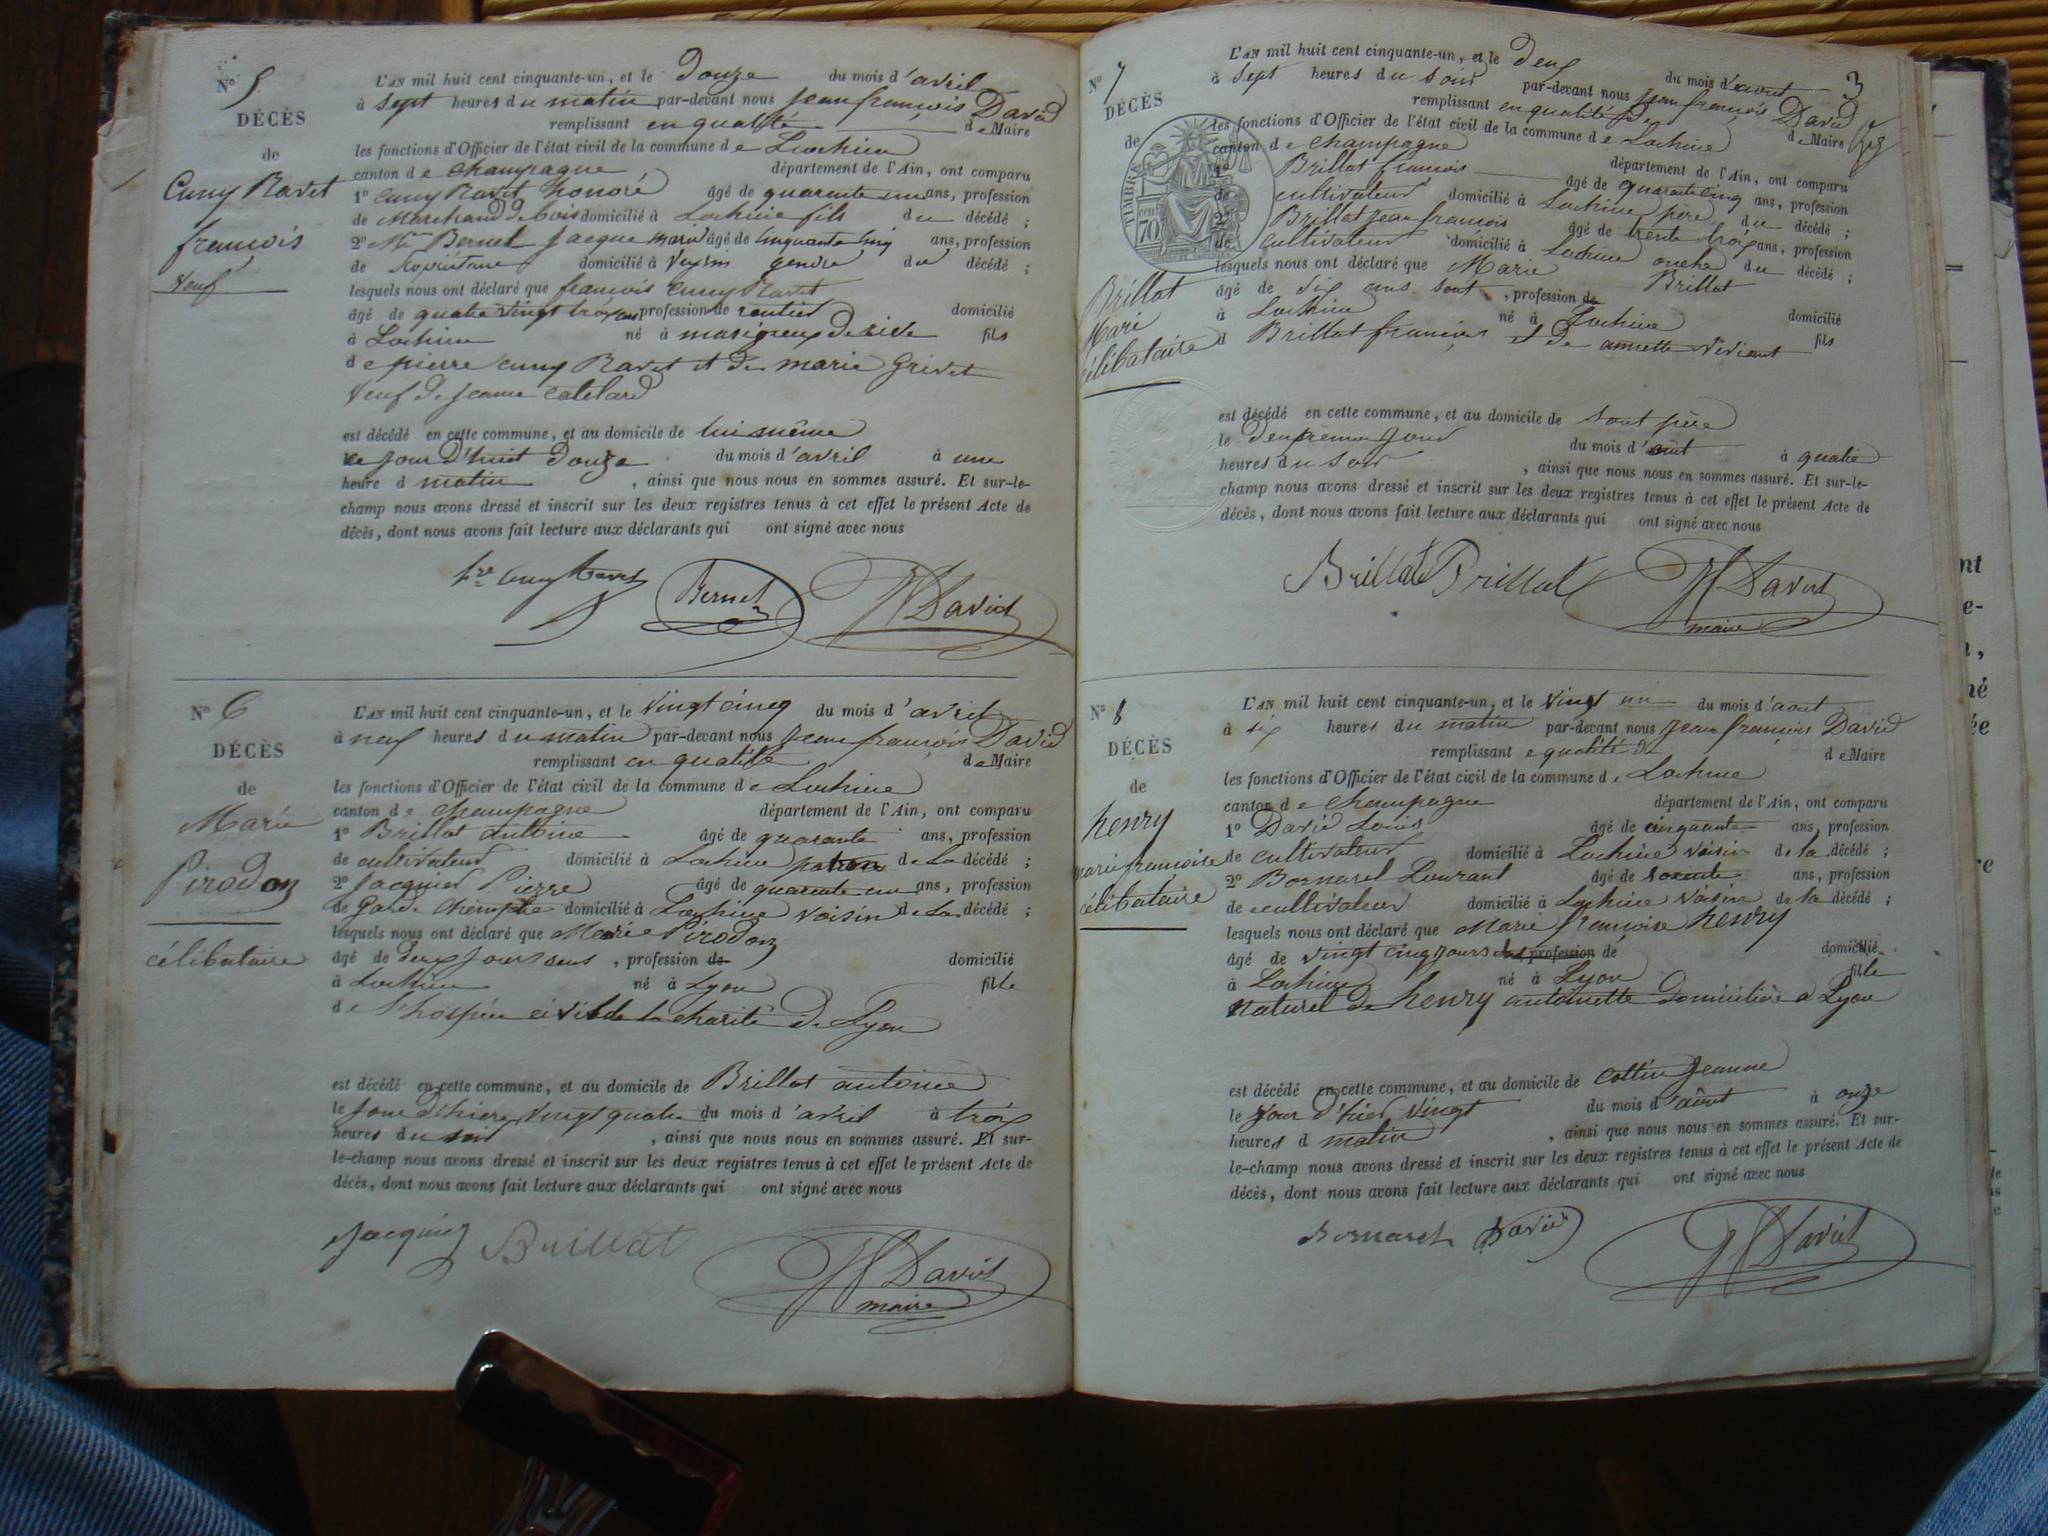 N° 5
DÉCÈS
de
Cuny Ravet
françois
Veuf
L'AN mil huit cent cinquante-un, et le Douze du mois d'avril
à sept heures du matin par-devant nous jean françois David
remplissant en qualité de Maire
les fonctions d'Officier de l'état civil de la commune de Lochieu
canton de champagne département de l'Ain, ont comparu
1° Cuny Ravet honoré âgé de quarante un ans, profession
de Marchand de bois domicilié à Lochieu fils du décédé ;
2° Bernet jacque marie âgé de Cinquante cinq ans, profession
de domicilié à gendre du décédé ;
lesquels nous ont déclaré que françois Cuny Ravet
âgé de quatre vingt trois ans profession de rentier domicilié
à Lochieu né à fils
de pierre cuny Ravet et de marie Grivet
Veuf de jeanne
est décédé en cette commune, et au domicile de lui même
le jour D'huit Douze du mois d'avril à une
heure d matin , ainsi que nous nous en sommes assuré. Et sur-le-
champ nous avons dressé et inscrit sur les deux registres tenus à cet effet le présent Acte de
décès, dont nous avons fait lecture aux déclarants qui ont signé avec nous
Cuny Ravet Bernet David
N° 6
DÉCÈS
de
Marie
Pirodon
célibataire
L'AN mil huit cent cinquante-un, et le Vingt cinq du mois d'avril
à neuf heures du matin par-devant nous jean françois David
remplissant en qualité de Maire
les fonctions d'Officier de l'état civil de la commune de Lochieu
canton de champagne département de l'Ain, ont comparu
1° Brillat antoine âgé de quarante ans, profession
de cultivateur domicilié à Lochieu patron de la décédé ;
2° Jacquier Pierre âgé de quarante un ans, profession
de Garde domicilié à Lochieu voisin de la décédé ;
lesquels nous ont déclaré que Marie Pirodon
âgé de , profession de domicilié
à Lochieu né à Lyon fille
de l'hospice civil de la charité de Lyon
est décédé en cette commune, et au domicile de Brillat antoine
le jour D'hier vingt quatre du mois d'avril à trois
heures du soir , ainsi que nous nous en sommes assuré. Et sur-
le-champ nous avons dressé et inscrit sur les deux registres tenus à cet effet le présent Acte de
décès, dont nous avons fait lecture aux déclarants qui ont signé avec nous
Jacquier Brillat David
maire
3
N° 7
DÉCÈS
de
Brillat
Marie
célibataire
TIMBRE
70
L'AN mil huit cent cinquante-un, et le Deux du mois d'aout
à Sept heures du soir par-devant nous jean françois David
remplissant en qualité de de Maire
les fonctions d'Officier de l'état civil de la commune de Lochieu
canton de champagne département de l'Ain, ont comparu
1° Brillat françois âgé de quarante cinq ans, profession
de cultivateur domicilié à Lochieu père du décédé ;
2° Brillat jean francois âgé de trente trois ans, profession
de cultivateur domicilié à Lochieu oncle du décédé ;
lesquels nous ont déclaré que Marie Brillat
âgé de Six ans sont , profession de domicilié
à Lochieu né à Lochieu fils
d Brillat françois et de annette
est décédé en cette commune, et au domicile de sont père
le deuxième jour du mois d'aout à quatre
heures du soir , ainsi que nous nous en sommes assuré. Et sur-le-
champ nous avons dressé et inscrit sur les deux registres tenus à cet effet le présent Acte de
décès, dont nous avons fait lecture aux déclarants qui ont signé avec nous
Brillat Brillat David
maire
N° 8
DÉCÈS
de
henry
marie françoise
célibataire
L'AN mil huit cent cinquante-un, et le vingt un du mois d'aout
à six heures du matin par-devant nous jean françois David
remplissant e qualité de de Maire
les fonctions d'Officier de l'état civil de la commune de Lochieu
canton de champagne département de l'Ain, ont comparu
1° David Louis âgé de cinquante ans, profession
de cultivateur domicilié à Lochieu voisin de la décédé ;
2° Bornarel Laurant âgé de soixante ans, profession
de cultivateur domicilié à Lochieu voisin de la décédé ;
lesquels nous ont déclaré que Marie françoise henry
âgé de vingt cinq jours profession de domicilié
à Lochieu né à Lyon fille
naturel de henry antoinette domiciliée a Lyon
est décédé en cette commune, et au domicile de cottin jeanne
le jour d'hier vingt du mois d'août à onze
heures d matin , ainsi que nous nous en sommes assuré. Et sur-
le-champ nous avons dressé et inscrit sur les deux registres tenus à cet effet le présent Acte de
décès, dont nous avons fait lecture aux déclarants qui ont signé avec nous
Bornarel David David